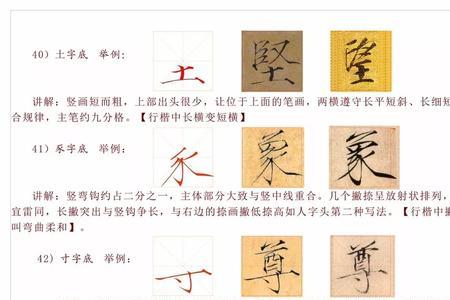 40）土字底 举例:
土 堅
讲解：竖画短而粗，上部出头很少，让位于上面的笔画，两横遵守长平短斜、长细短
合规律，主笔约九分格。【行楷中长横变短横】
41）豕字底 举例：
豕 象 象
讲解：竖弯钩约占二分之一，主体部分大致与竖中线重合。几个撇捺呈放射状排列，
宜雷同，长撇突出与竖钩争长，与右边的捺画撇低捺高如人字头第二种写法。【行楷中撇
叫弯曲柔和】。
42）寸字底 举例：
寸 尊 尊